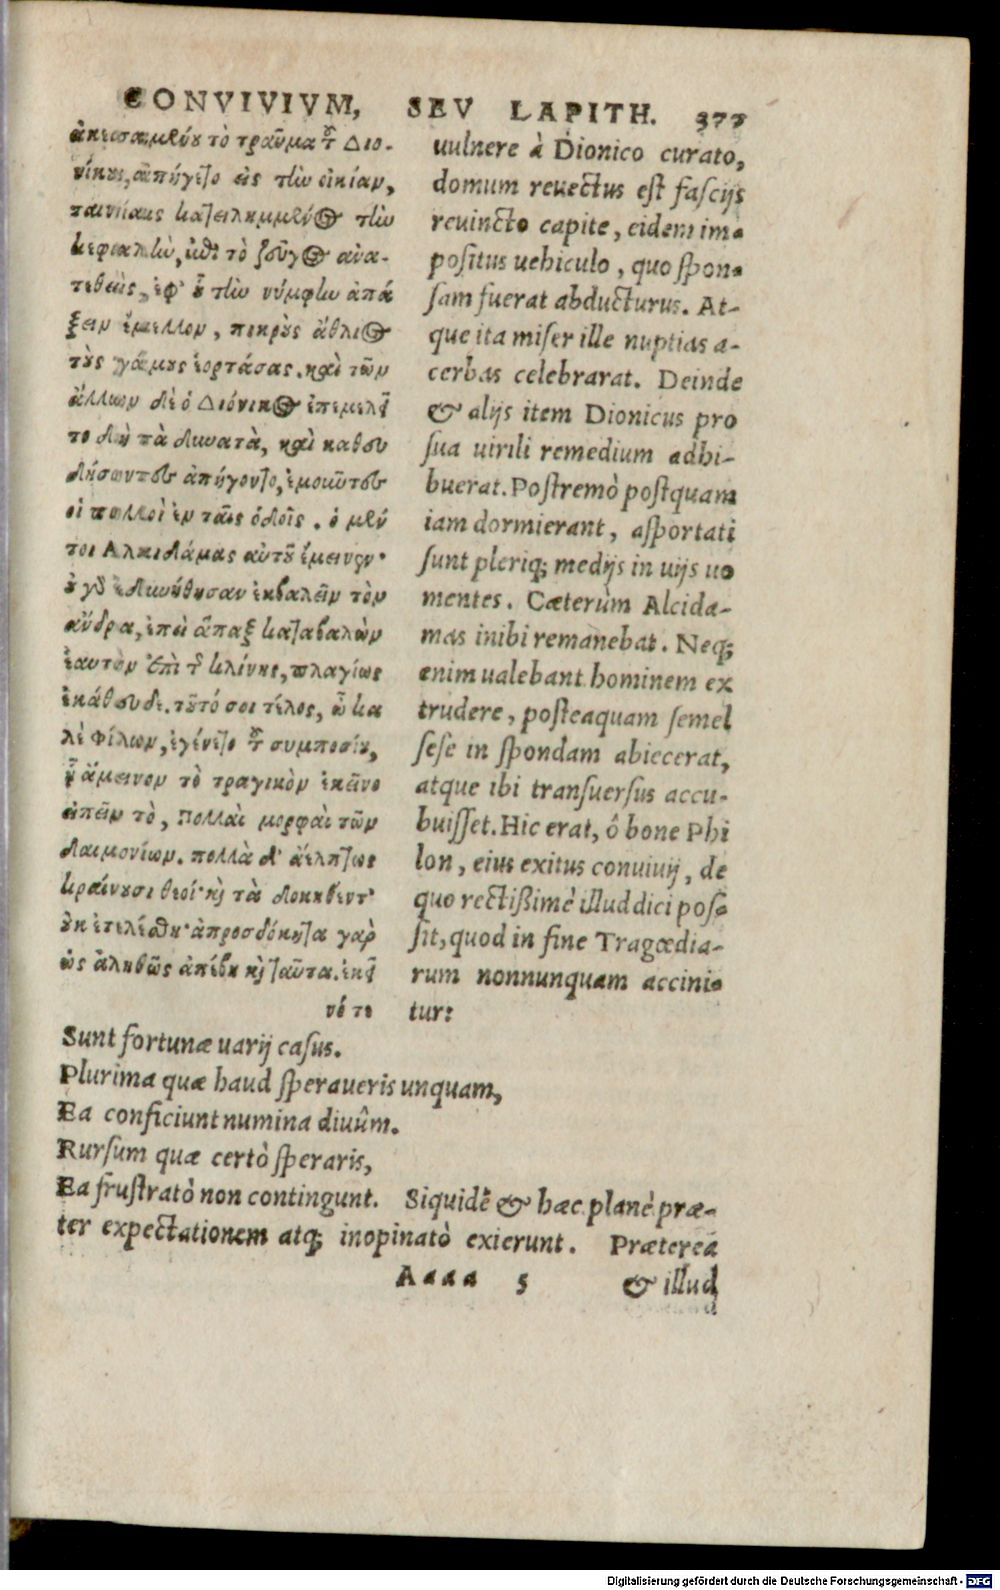 CONVIVIVM, SEV LAPITH. 377
ἀκεσαμένου τὸ τραῦμα τοῦ Διο-
νίκου, ἀπήγετο ἐς τὴν οἰκίαν,
ταινίαις κατειλημμένος τὴν
κεφαλὴν, ἐπὶ τὸ ζεῦγος ἀνα-
τεθεὶς, ἐφ' οὗ τὴν νύμφην ἀπά
ξειν ἔμελλον, πικροὺς ἄθλιος
τοὺς γάμους ἑορτάσας. καὶ τῶν
ἄλλων δὲ ὁ Διόνικος ἐπεμελεῖ
το δὴ τὰ δυνατὰ, καὶ καθευ
δήσοντες ἀπήγοντο, ἐμοῦντες
οἱ πολλοὶ ἐν ταῖς ὁδοῖς. ὁ μέν
τοι Αλκιδάμας αὐτοῦ ἔμεινεν·
οὐ γὰρ ἐδυνήθησαν ἐκβαλεῖν τὸν
ἄνδρα, ἐπεὶ ἅπαξ καταβαλὼν
ἑαυτὸν ἐπὶ τῆς κλίνης, πλαγίως
ἐκάθευδε. τοῦτό σοι τέλος, ὦ κα
λὲ Φίλων, ἐγένετο τοῦ συμποσίου,
ἢ ἄμεινον τὸ τραγικὸν ἐκεῖνο
εἰπεῖν τὸ, Πολλαὶ μορφαὶ τῶν
δαιμονίων. πολλὰ δ' ἀέλπτως
κραίνουσι θεοί· καὶ τὰ δοκηθέντ'
οὐκ ἐτελέσθη· ἀπροσδόκητα γὰρ
ὡς ἀληθῶς ἀπέβη καὶ ταῦτα. ἐκεῖ
νό τε
uulnere à Dionico curato,
domum reuectus est fascijs
reuincto capite, eidem im-
positus uehiculo, quo spon-
sam fuerat abducturus. At-
que ita miser ille nuptias a-
cerbas celebrarat. Deinde
& alijs item Dionicus pro
sua uirili remedium adhi-
buerat. Postremò postquam
iam dormierant, asportati
sunt pleriq; medijs in uijs uo
mentes. Cæterùm Alcida-
mas inibi remanebat. Neq;
enim ualebant hominem ex
trudere, posteaquam semel
sese in spondam abiecerat,
atque ibi transuersus accu-
buisset. Hic erat, ô bone Phi
lon, eius exitus conuiuij, de
quo rectißimè illud dici pos-
sit, quod in fine Tragœdia-
rum nonnunquam accini-
tur:
Sunt fortunæ uarij casus.
Plurima quæ haud speraueris unquam,
Ea conficiunt numina diuûm.
Rursum quæ certò speraris,
Ea frustratò non contingunt. Siquidẽ & hæc planè præ-
ter expectationem atq; inopinatò exierunt. Præterea
Aaaa 5 & illud
Digitalisierung gefördert durch die Deutsche Forschungsgemeinschaft - DFG